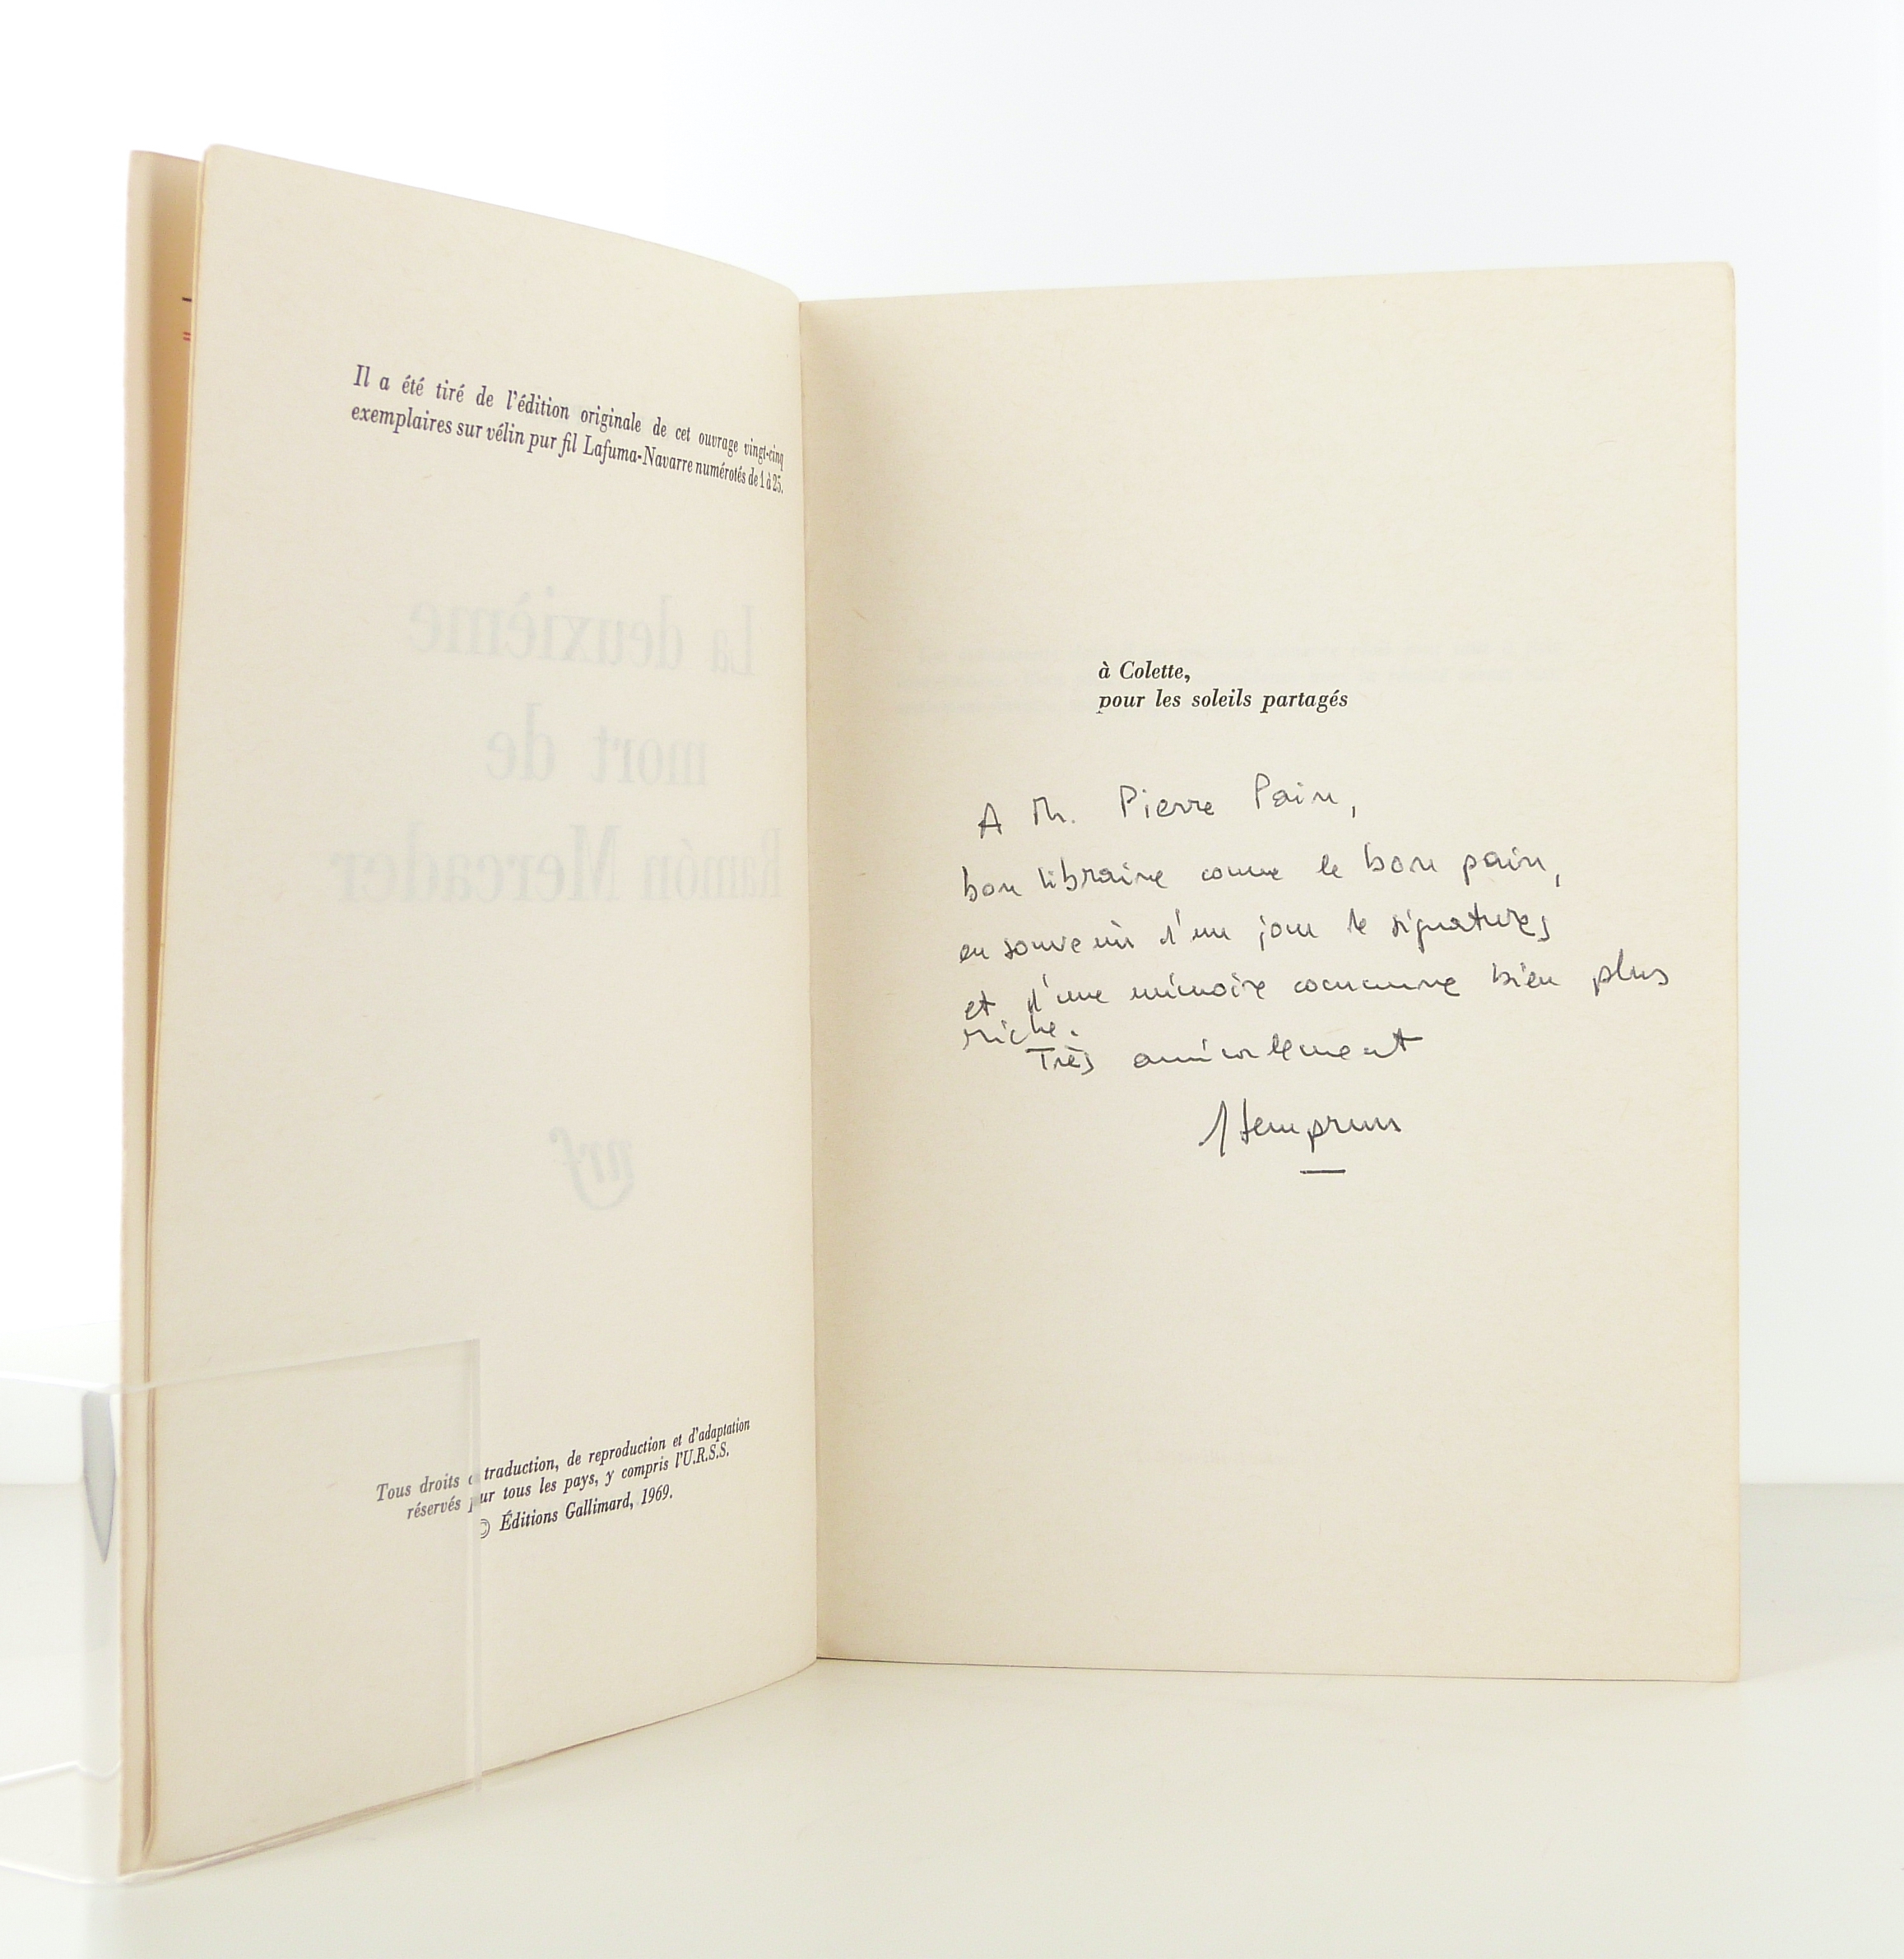 Il a été tiré de l'édition originale de cet ouvrage vingt-cinq
exemplaires sur vélin pur fil Lafuma-Navarre numérotés de 1 à 25.
La deuxième
mort de
Ramón Mercader
nrf
Tous droits de traduction, de reproduction et d'adaptation
réservés pour tous les pays, y compris l'U.R.S.S.
© Éditions Gallimard, 1969.
à Colette,
pour les soleils partagés
A M. Pierre Pain,
bon libraire comme le bon pain,
en souvenir d'un jour de signatures
et d'une mémoire commune bien plus
riche.
Très amicalement
JSemprun